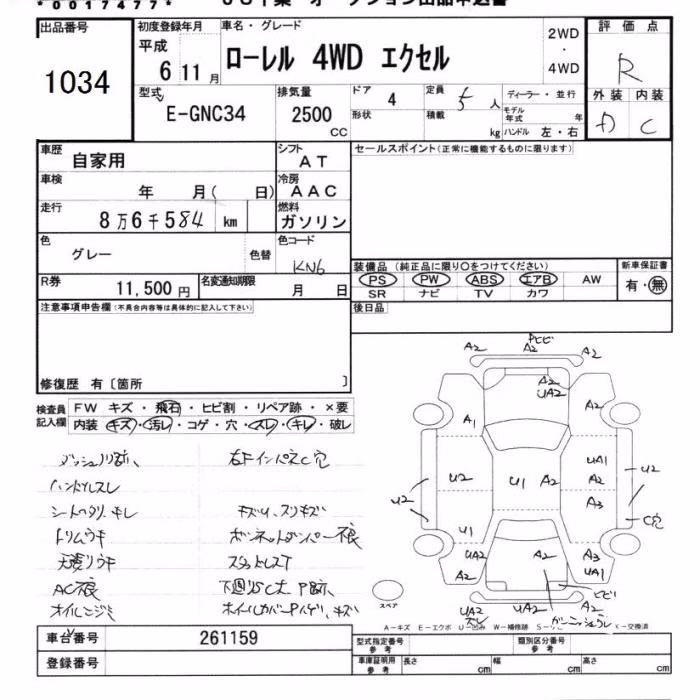 *0017477*
出品番号
1034
初度登録年月
平成
6 11月
車名・グレード
ローレル 4WD エクセル
2WD
・
4WD
評価点
R
外装 内装
C
型式
E-GNC34
排気量
2500
CC
ドア
4
形状
定員
5 人
積載
kg
ディーラー・並行
モデル年式 年
ハンドル 左・右
車歴
自家用
シフト
AT
車検
年 月( 日)
冷房
AAC
走行
8万6千584 km
燃料
ガソリン
セールスポイント(正常に機能するものに限ります)
色
グレー
色替
色コード
KN6
R券
11,500円
名変通知期限
月 日
装備品(純正品に限り○をつけてください)
PS PW ABS エアB AW
SR ナビ TV カワ
新車保証書
有・無
注意事項申告欄(不具合内容等は具体的に記入して下さい)
後日品
修復歴 有〔箇所 〕
検査員記入欄
FW キズ・飛石・ヒビ割・リペア跡・×要
内装 キズ・汚レ・コゲ・穴・スレ・キレ・破レ
ダッシュノリ跡、
右FインパネC穴
ハンドルスレ
シートヘタリ キレ
キズU、スリキズ
トリムウキ
ボンネットダンパー不良
天張リウキ
スタッドレスT
AC不良
下廻リSC大 P跡、
オイルニジミ
ホイールカバーPハゲ、キズ
A2
ヒビ
A2
A2
A2
UA2
A1
A2
UA1
U2
U2
U1
A2
A2
U2
A3
C穴
U1
UA2
A2
A2
A3
UA1
ヒビ
UA2
スレ
UA2
A2
スペア
A-キズ E-エクボ U-凹み W-補修跡 X-交換済
車台番号
261159
登録番号
型式指定番号
参考
類別区分番号
参考
車庫証明用
参考
長さ cm
幅 cm
高さ cm